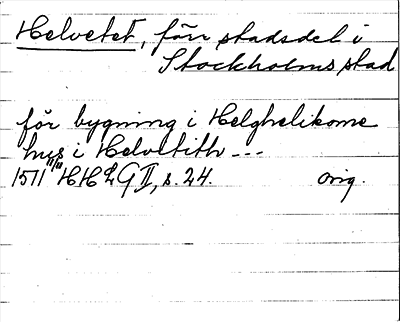 Helvetet, förr stadsdel i
Stockholms stad
för bygning i Helghelikome
hus i Helvetith ---
1511 11/11 HH2G II, s. 24. orig.